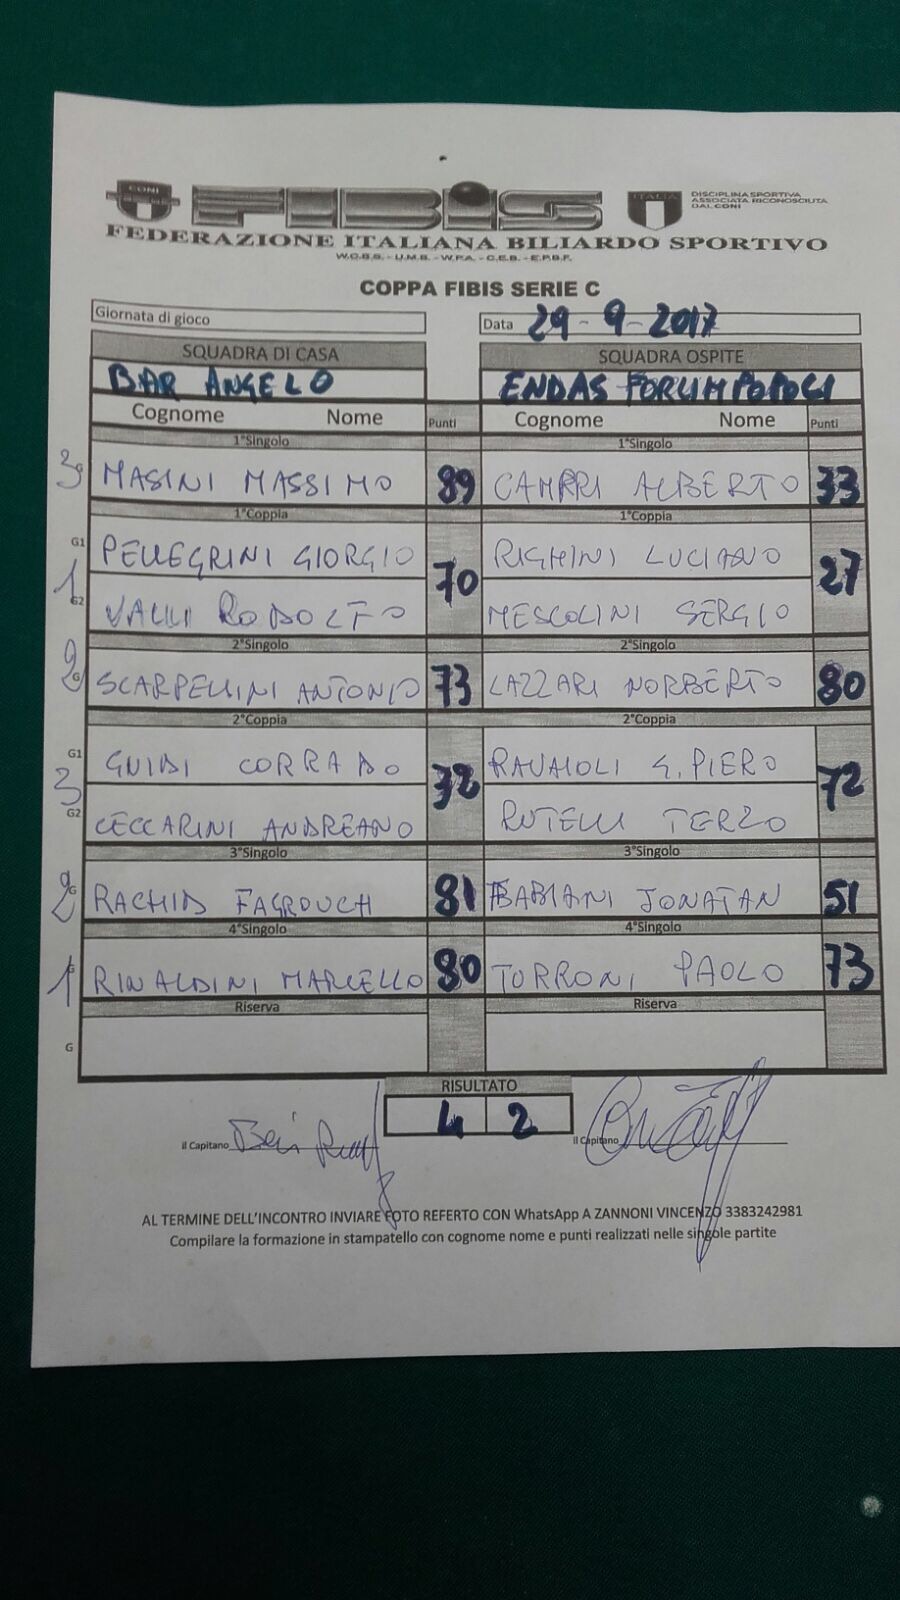 CONI FIBIS ITALIA DISCIPLINA SPORTIVA
ASSOCIATA RICONOSCIUTA
DAL CONI
FEDERAZIONE ITALIANA BILIARDO SPORTIVO
W.C.B.S. - U.M.B. - W.P.A. - C.E.B. - E.P.B.F.
COPPA FIBIS SERIE C
Giornata di gioco Data 29-9-2017
SQUADRA DI CASA SQUADRA OSPITE
BAR ANGELO ENDAS FORLIMPOPOLI
Cognome Nome Punti Cognome Nome Punti
1°Singolo 1°Singolo
3 G MASINI MASSIMO 89 CAMPRI ALBERTO 33
1°Coppia 1°Coppia
G1 PELLEGRINI GIORGIO RIGHINI LUCIANO
1 70 27
G2 VALLI RODOLFO MESCOLINI SERGIO
2°Singolo 2°Singolo
2 G SCARPELLINI ANTONIO 73 LAZZARI NORBERTO 80
2°Coppia 2°Coppia
G1 GUIDI CORRADO RAVAIOLI G. PIERO
3 72
G2 CECCARINI ANDREANO RUTELLI TERZO
3°Singolo 3°Singolo
2 G RACHID FAGROUCH 81 FABIANI JONATAN 51
4°Singolo 4°Singolo
1 RINALDINI MARCELLO 80 TORRONI PAOLO 73
Riserva Riserva
G
RISULTATO
4 2
il Capitano il Capitano
AL TERMINE DELL'INCONTRO INVIARE FOTO REFERTO CON WhatsApp A ZANNONI VINCENZO 3383242981
Compilare la formazione in stampatello con cognome nome e punti realizzati nelle singole partite